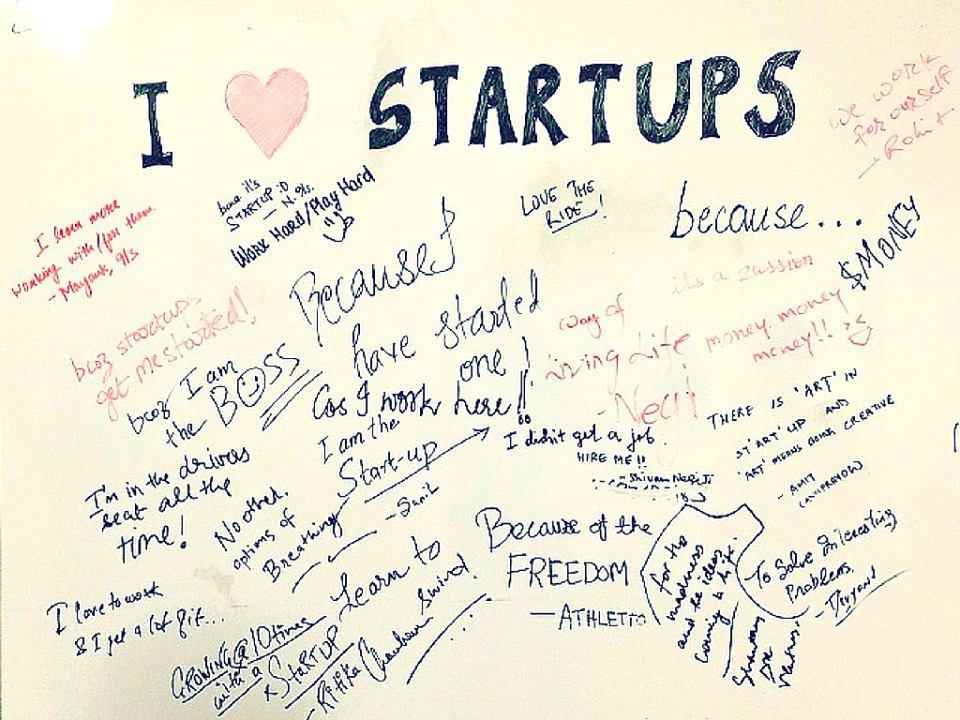 I ♥ STARTUPS
we work
for ourself
- Rohit
because...
I learn more
working with/for them
- Mayank, 91s
bcuz it's
STARTUP :D
- N. 91s.
Work Hard/Play Hard
LOVE THE
RIDE!
$MONEY
bcoz startups
get me started!
Because I
have started
one!
its a passion
way of
Living Life
- Neeti
money money
money!!
bcoz I am
the BOSS
Cos I work here!!
I am the
Start-up
- Sunil
I didn't get a job.
HIRE ME!!
THERE IS 'ART' IN
ST'ART'UP AND
'ART' MEANS DOING CREATIVE
- AMIT
I'm in the drivers
seat all the
time!
No other
options of
Breathing
Because of the
FREEDOM
- ATHLETTO
for the
madness
and the ideas
coming to life.
To Solve Interesting
Problems.
I love to work
& I get a lot of it...
Learn to
Swind!
GROWING @ 10 times
with a
STARTUP
- Ritika Chauhan
...